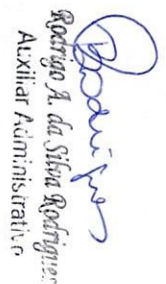 Rodrigues
Rodrigo A. da Silva Rodrigues
Auxiliar Administrativo